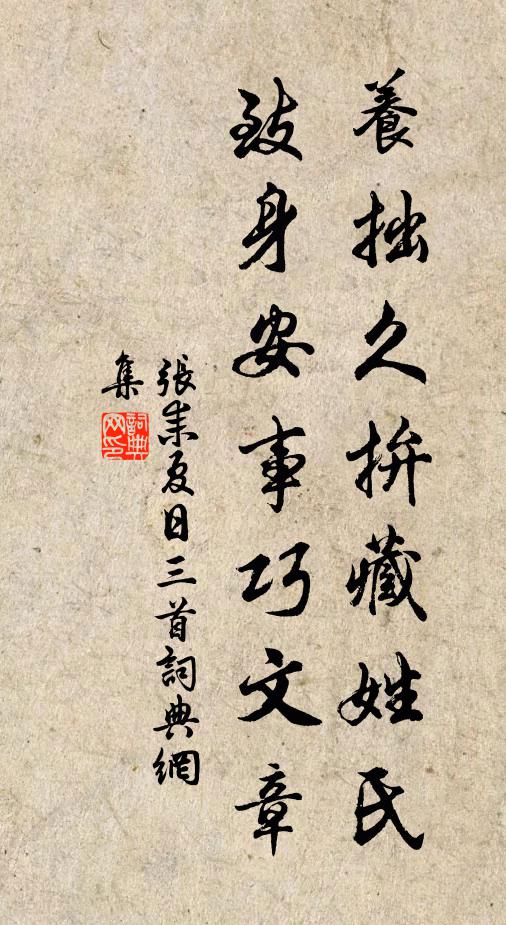 養拙久拚藏姓氏
致身安事巧文章
張耒夏日三首詞典網
集
詞典
网印